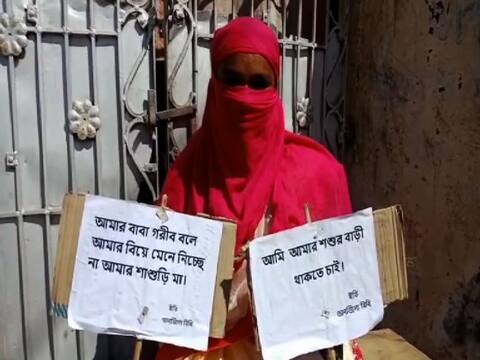 আমার বাবা গরীব বলে
আমার বিয়ে মেনে নিচ্ছে
না আমার শাশুড়ি মা।
ইতি
বিবি
আমি আমার শশুর বাড়ী
থাকতে চাই।
ইতি
বিবি